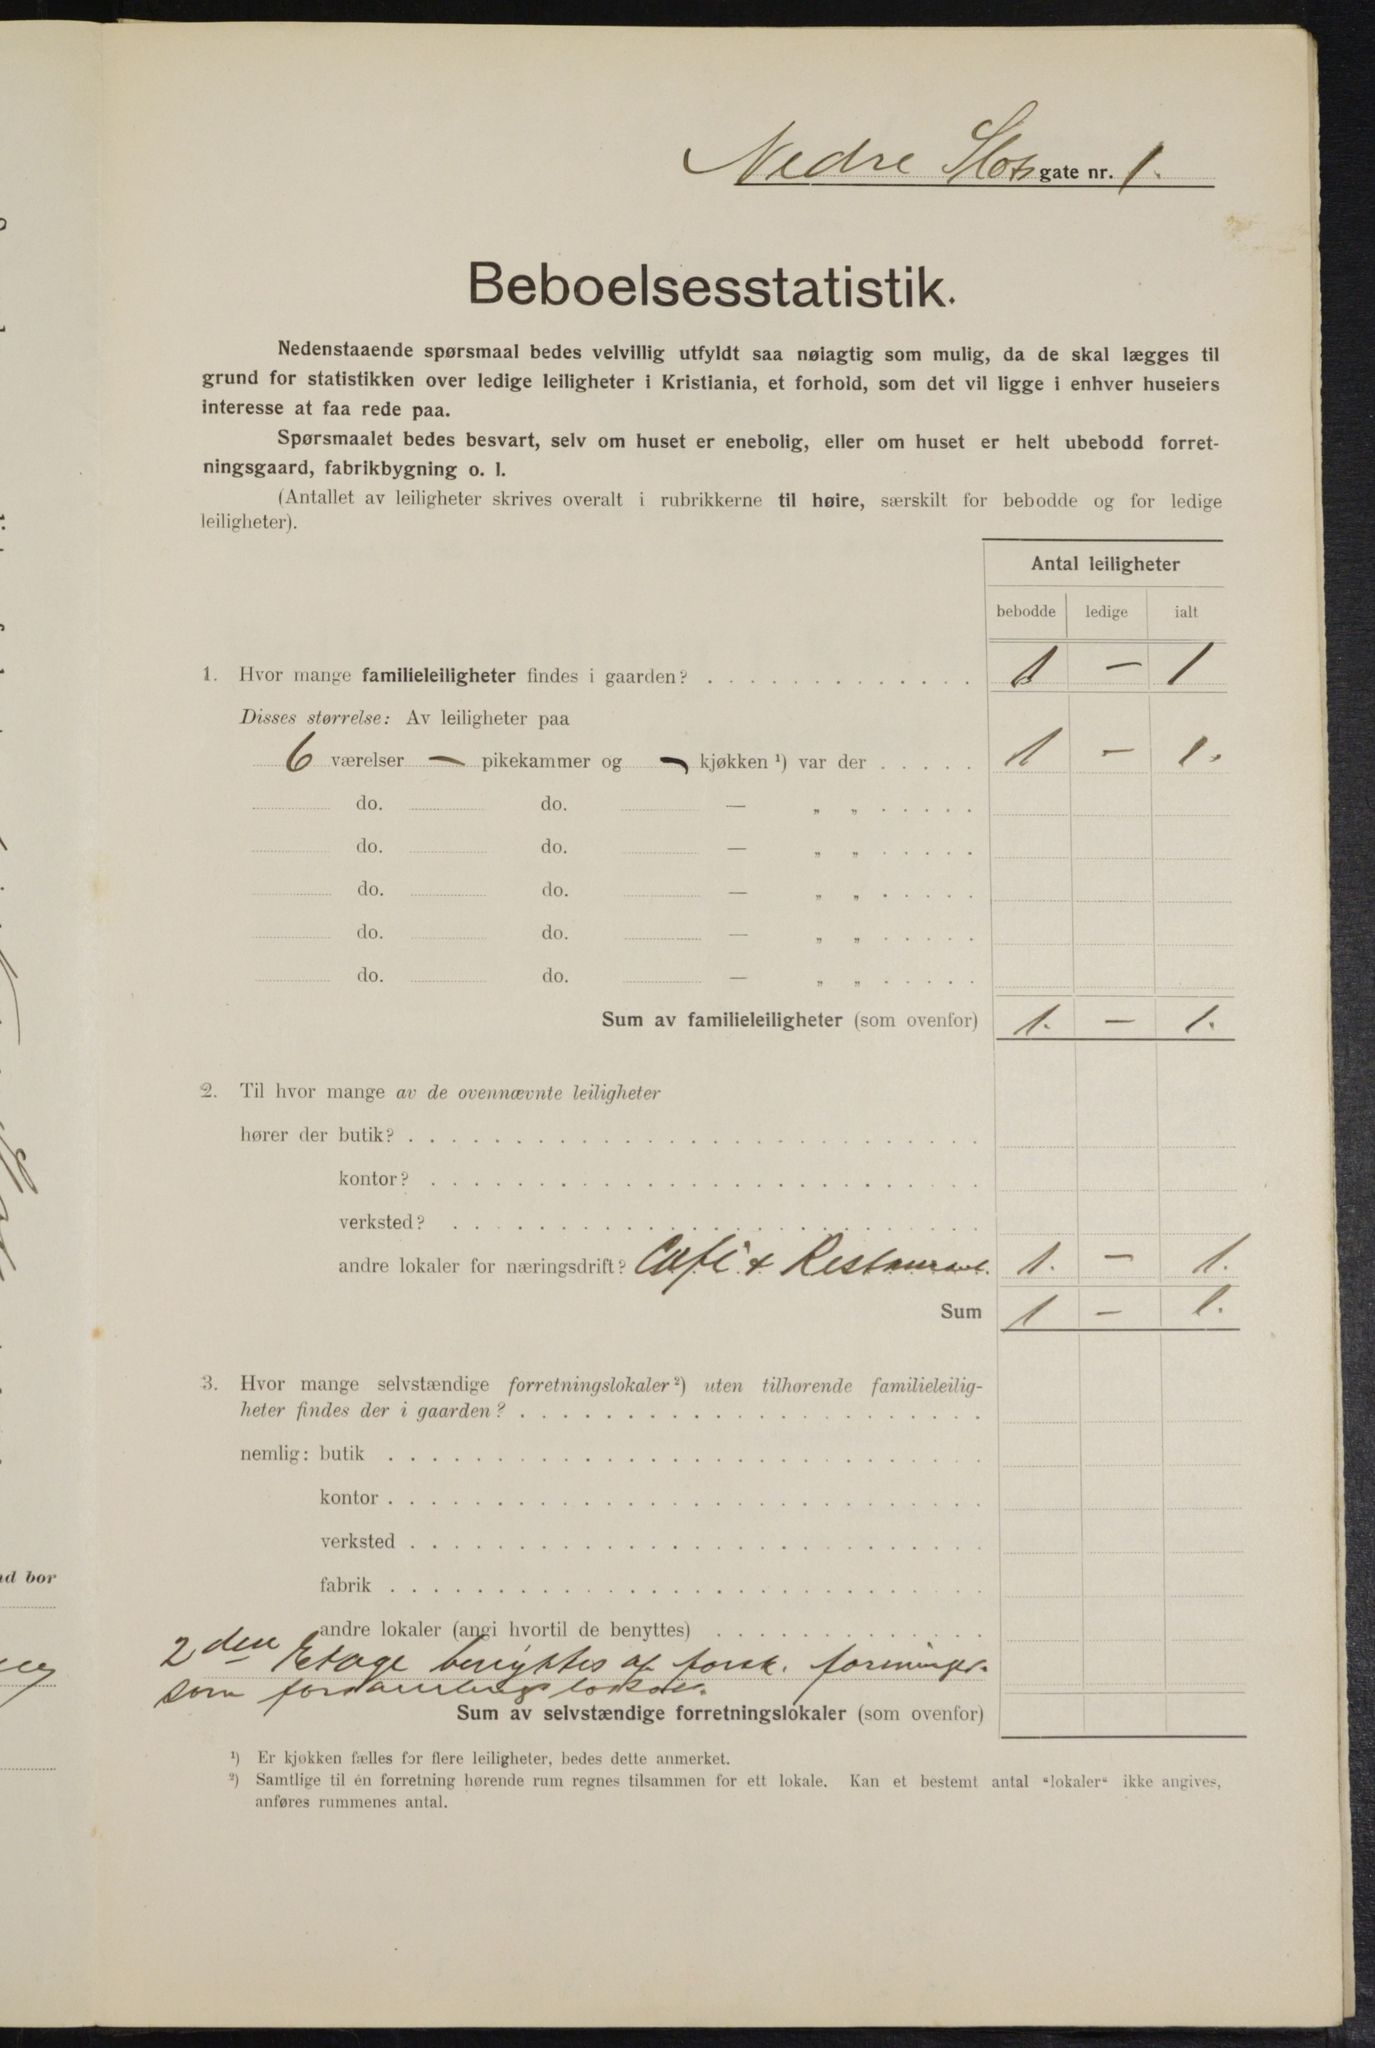 Nedre Slots gate nr. 1.
Beboelsesstatistik.
Nedenstaaende spørsmaal bedes velvillig utfyldt saa nøiagtig som mulig, da de skal lægges til
grund for statistikken over ledige leiligheter i Kristiania, et forhold, som det vil ligge i enhver huseiers
interesse at faa rede paa.
Spørsmaalet bedes besvart, selv om huset er enebolig, eller om huset er helt ubebodd forret-
ningsgaard, fabrikbygning o. l.
(Antallet av leiligheter skrives overalt i rubrikkerne til høire, særskilt for bebodde og for ledige
leiligheter).
Antal leiligheter
bebodde ledige ialt
1. Hvor mange familieleiligheter findes i gaarden? . . . . . . . . . . . . . 1 — 1
Disses størrelse: Av leiligheter paa
6 værelser — pikekammer og — kjøkken ¹) var der . . . . . 1 — 1.
do. do. — „ „ . . . . .
do. do. — „ „ . . . . .
do. do. — „ „ . . . . .
do. do. — „ „ . . . . .
do. do. — „ „ . . . . .
Sum av familieleiligheter (som ovenfor) 1. — 1.
2. Til hvor mange av de ovennævnte leiligheter
hører der butik? . . . . . . . . . . . . . . . . . . . . . . . . . .
kontor? . . . . . . . . . . . . . . . . . . . . . . . . .
verksted? . . . . . . . . . . . . . . . . . . . . . . . .
andre lokaler for næringsdrift? Café & Restaurant. 1. — 1.
Sum 1 — 1.
3. Hvor mange selvstændige forretningslokaler ²) uten tilhørende familieleilig-
heter findes der i gaarden? . . . . . . . . . . . . . . . . . . . . .
nemlig: butik . . . . . . . . . . . . . . . . . . . . . . . . . . .
kontor . . . . . . . . . . . . . . . . . . . . . . . . . . .
verksted . . . . . . . . . . . . . . . . . . . . . . . . . .
fabrik . . . . . . . . . . . . . . . . . . . . . . . . . . .
andre lokaler (angi hvortil de benyttes) . . . . . . . . . . . . .
2den Etage benyttes af forsk. foreninger.
som forsamlingslokale.
Sum av selvstændige forretningslokaler (som ovenfor)
¹) Er kjøkken fælles for flere leiligheter, bedes dette anmerket.
²) Samtlige til én forretning hørende rum regnes tilsammen for ett lokale. Kan et bestemt antal “lokaler“ ikke angives,
anføres rummenes antal.
nd bor